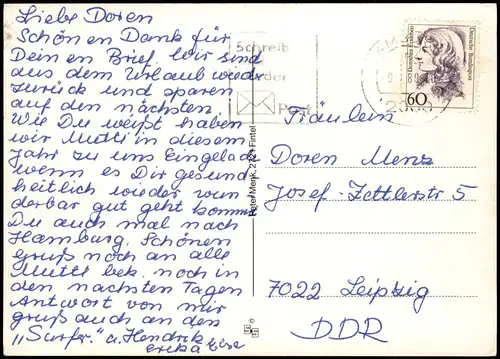 Liebe Doren
Schönen Dank für
Deinen Brief. Wir sind
aus dem Urlaub wieder
zurück und sparen
auf den nächsten.
Wie Du weißt haben
wir Mutti in diesem
Jahr zu uns Eingelad
wenn es Dir gesund
heitlich wieder wun
derbar gut geht komm
Du auch mal nach
Hamburg. Schönen
gruß noch an alle
Mutti bek. noch in
den nächsten Tagen
Antwort von mir
gruß auch an den
"Surfer" u. Hendrik
erika
Schreib
der
Post
Deutsche Bundespost
60
Peter Menk, 2121 Fintel
Fräulein
Doren Menz
Josef-Zettlerstr 5
7022 Leipzig
DDR